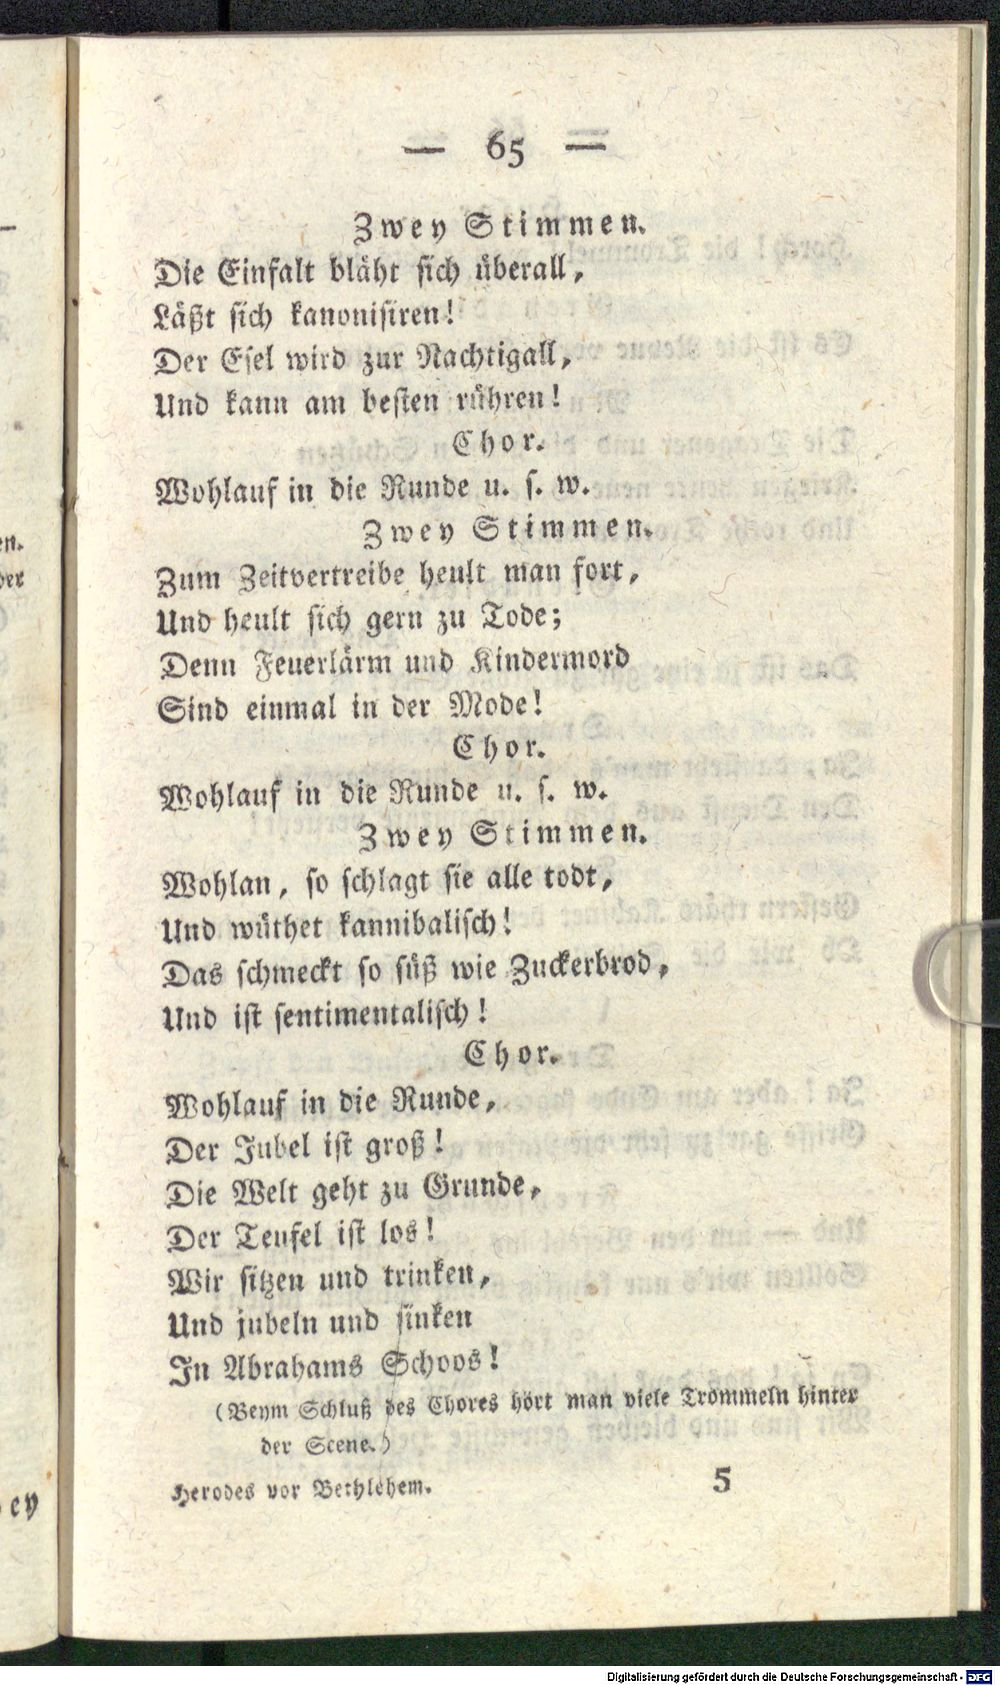 — 65 —
Zwey Stimmen.
Die Einfalt bläht sich überall,
Läßt sich kanonisiren!
Der Esel wird zur Nachtigall,
Und kann am besten rühren!
Chor.
Wohlauf in die Runde u. s. w.
Zwey Stimmen.
Zum Zeitvertreibe heult man fort,
Und heult sich gern zu Tode;
Denn Feuerlärm und Kindermord
Sind einmal in der Mode!
Chor.
Wohlauf in die Runde u. s. w.
Zwey Stimmen.
Wohlan, so schlagt sie alle todt,
Und wüthet kannibalisch!
Das schmeckt so süß wie Zuckerbrod,
Und ist sentimentalisch!
Chor.
Wohlauf in die Runde,
Der Jubel ist groß!
Die Welt geht zu Grunde,
Der Teufel ist los!
Wir sitzen und trinken,
Und jubeln und sinken
In Abrahams Schoos!
(Beym Schluß des Chores hört man viele Trommeln hinter
der Scene.)
Herodes vor Bethlehem. 5
Digitalisierung gefördert durch die Deutsche Forschungsgemeinschaft - DFG